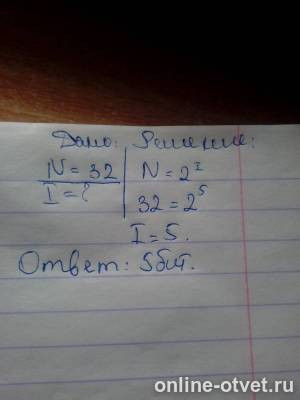 Дано: Решение:
N = 32 N = 2^I
I = ? 32 = 2^5
I = 5.
Ответ: 5 бит.
online-otvet.ru